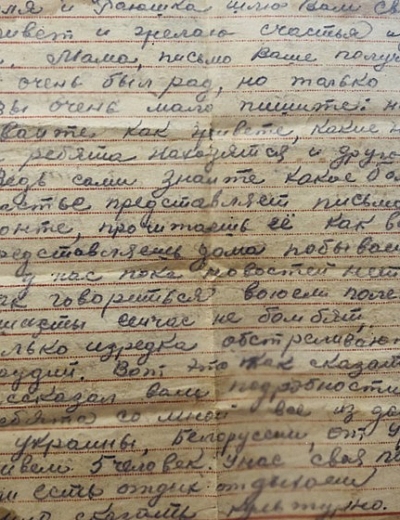 мля и Раюшка шлю вам св
ивет и желаю счастья и
. Мама, письмо Ваше получ
очень был рад, но только
вы очень мало пишите н
вайте как живете, какие н
ребята находятся и друго
ведь сами знаите какое бол
астье представляет письмо
онте, прочитаешь её как в
редставляешь дома побывает
у нас пока новостей нет
ак говориться воюем поле
шисты сейчас не бомбят,
олько изредка обстреливают
рудий. Вот это так сказат
ссказал вам подробности
ебята со мной все из до
украины, Белоруссии, от у
ивем 5 человек. Унас своя
ам есть отдых отдыхаем
но сказать культурно.